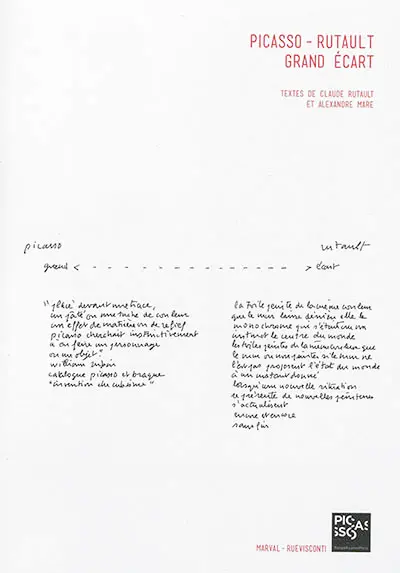 PICASSO - RUTAULT
GRAND ÉCART
TEXTES DE CLAUDE RUTAULT
ET ALEXANDRE MARE
picasso
rutault
grand < - - - - - - - - - - - - - > écart
"placé devant une trace,
un pâté ou une tache de couleur
un effet de matière ou de relief
picasso cherchait instinctivement
à en faire un personnage
ou un objet."
william rubin
catalogue picasso et braque
"invention du cubisme"
la toile peinte de la même couleur
que le mur laisse derrière elle le
monochrome qui s'était cru un
instant le centre du monde
les toiles peintes de la même couleur que
le mur ou non peintes si le mur ne
l'est pas proposent l'état du monde
à un instant donné
lorsqu'une nouvelle situation
se présente de nouvelles peintures
s'actualisent
encore et encore
sans fin
MARVAL - RUEVISCONTI
PIC
AS
SSO